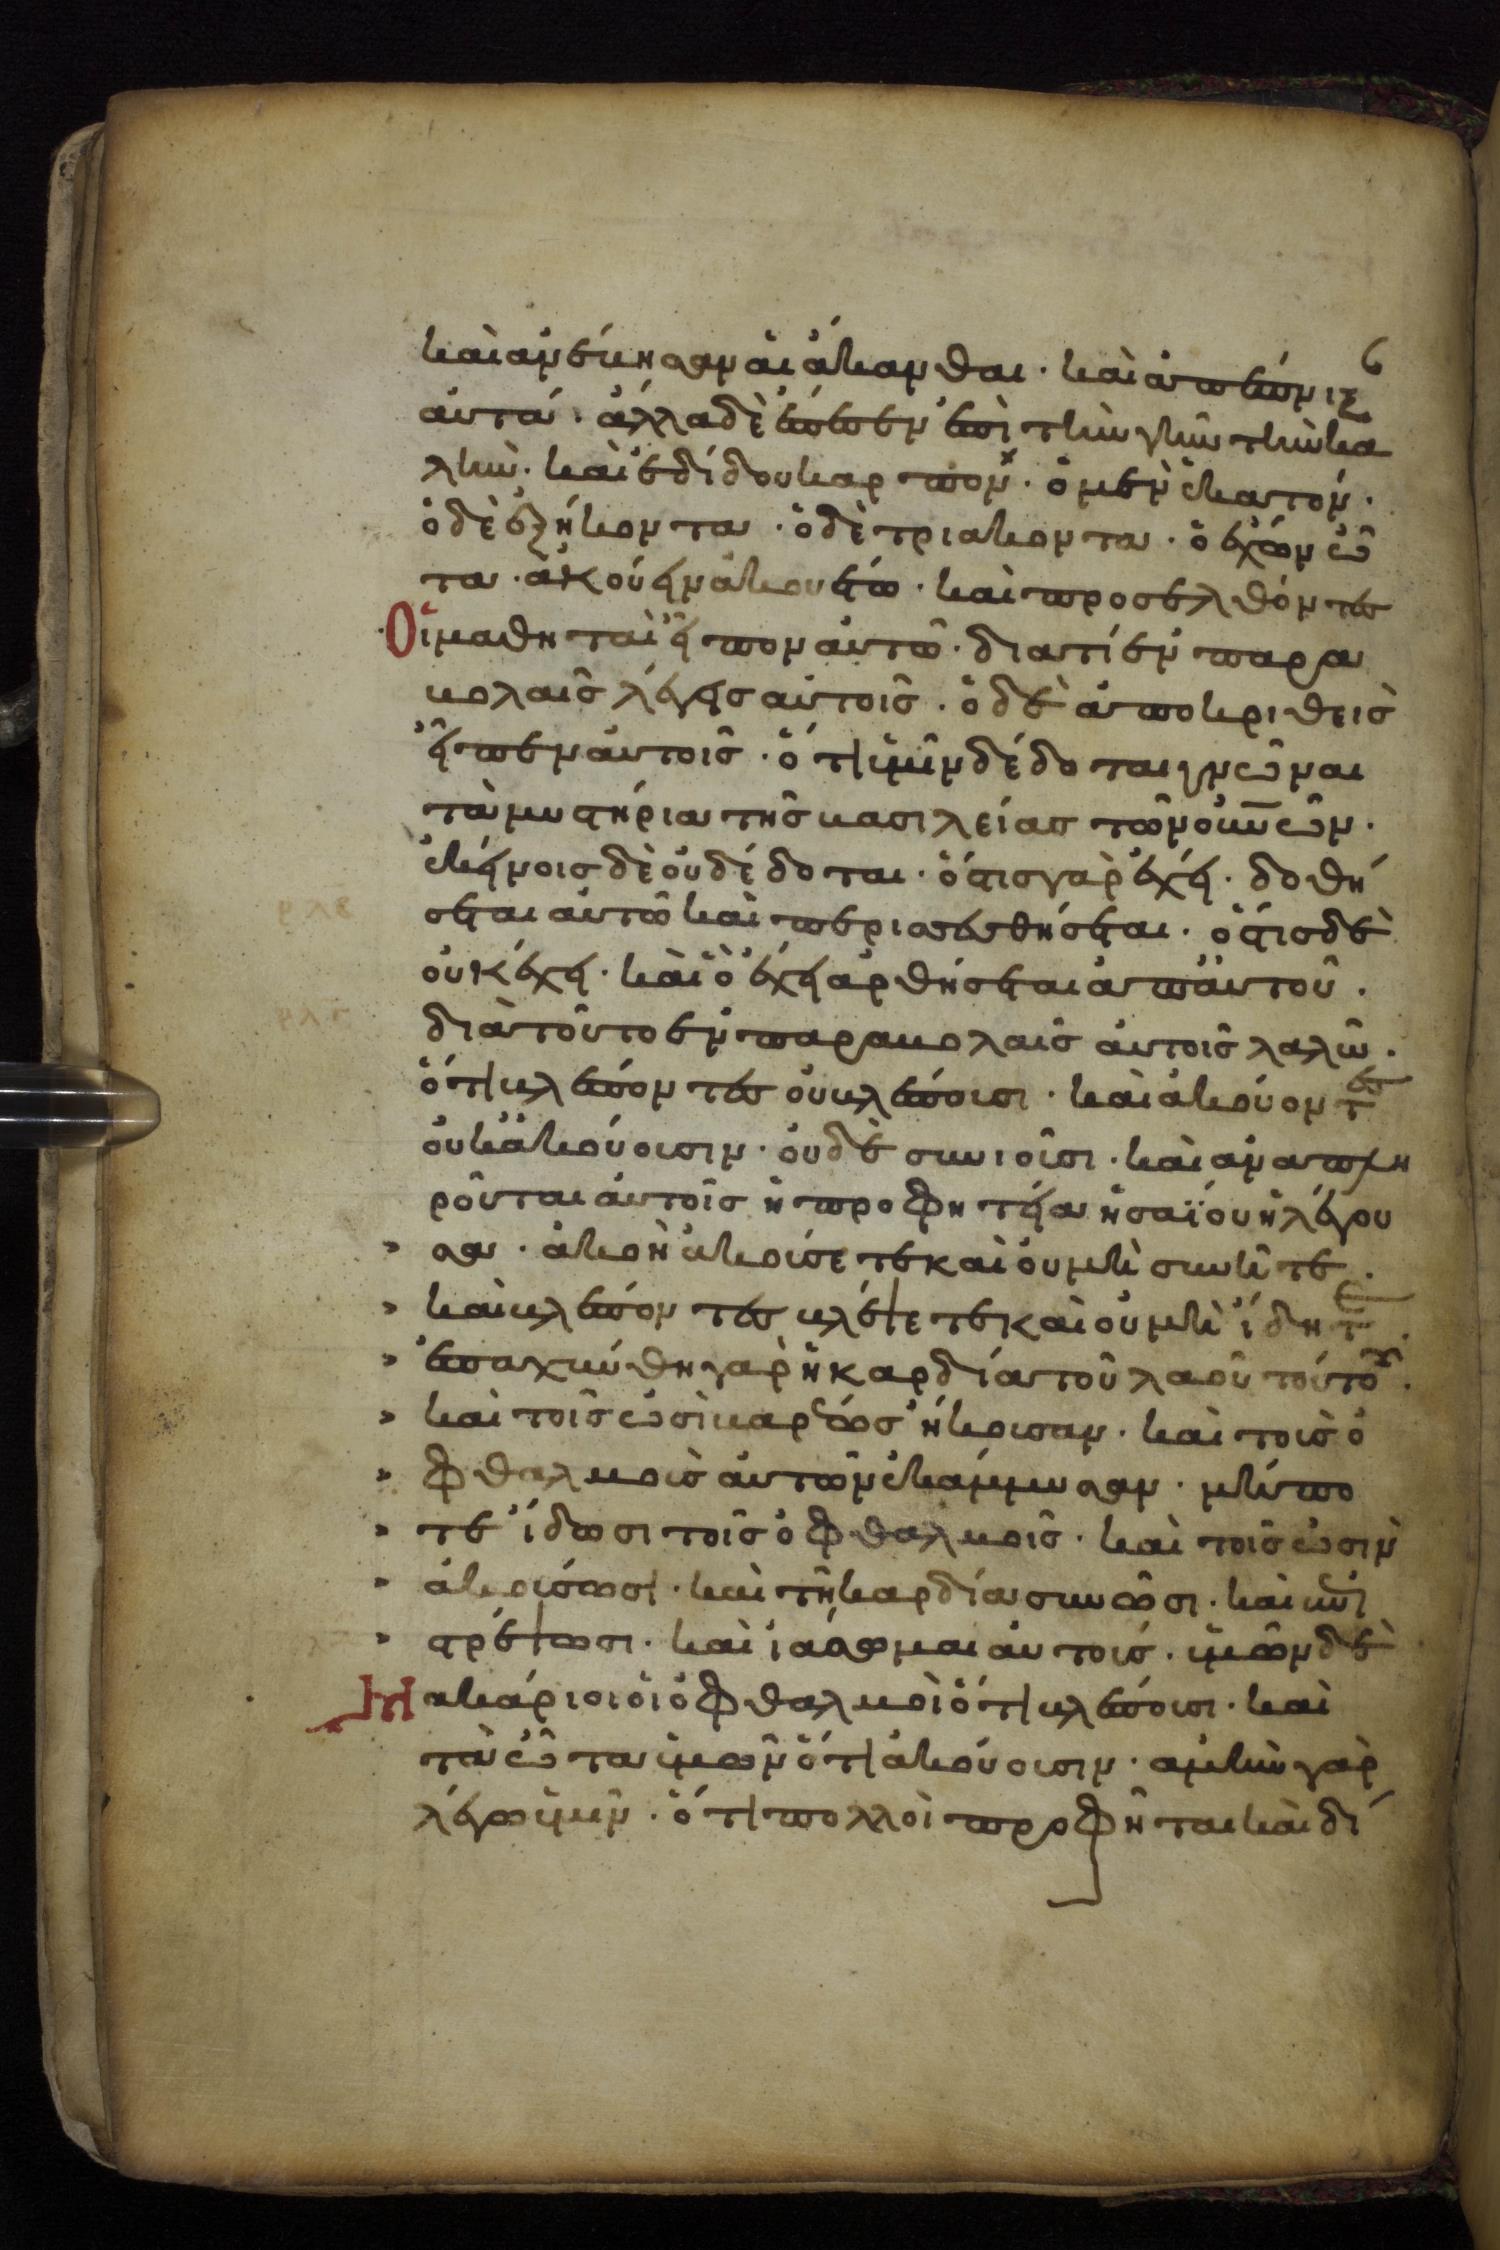 καὶ ἀνέβησαν αἱ ἄκανθαι· καὶ ἀπέπνιξ
αὐτά· ἄλλα δὲ ἔπεσεν ἐπὶ τὴν γῆν τὴν κα
λὴν· καὶ ἐδίδου καρπὸν· ὃ μὲν ἑκατόν·
ὃ δὲ ἑξήκοντα· ὃ δὲ τριάκοντα· ὁ ἔχων ὦ
τα ἀκούειν ἀκουέτω· καὶ προσελθόντες
Οἱ μαθηταὶ εἶπον αὐτῶ· διατί ἐν παρα
βολαῖς λέγεις αὐτοῖς· ὁ δὲ ἀποκριθεὶς
εἶπεν αὐτοῖς· ὅτι ὑμῖν δέδοται γνῶναι
τὰ μυστήρια τῆς βασιλείας τῶν οὐνῶν·
ἐκείνοις δὲ οὐ δέδοται· ὅστις γὰρ ἔχει· δοθή
σεται αὐτῶ καὶ περισσευθήσεται· ὅστις δὲ
οὐκ ἔχει· καὶ ὃ ἔχει ἀρθήσεται ἀπ' αὐτοῦ·
ρλβ
διὰ τοῦτο ἐν παραβολαῖς αὐτοῖς λαλῶ·
ὅτι βλέποντες οὐ βλέπουσι· καὶ ἀκούοντες
οὐκ ἀκούουσιν· οὐδὲ συνιοῦσι· καὶ ἀναπλη
ροῦται αὐτοῖς ἡ προφητεία ἡσαΐου ἡ λέγου
σα· ἀκοῆ ἀκούσετε καὶ οὐ μὴ συνῆτε·
καὶ βλέποντες βλέψετε καὶ οὐ μὴ ἴδητε·
ἐπαχύνθη γὰρ ἡ καρδία τοῦ λαοῦ τούτου·
καὶ τοῖς ὠσὶ βαρέως ἤκουσαν· καὶ τοὺς ὀ
φθαλμοὺς αὐτῶν ἐκάμμυσαν· μήπο
τε ἴδωσι τοῖς ὀφθαλμοῖς· καὶ τοῖς ὠσὶν
ἀκούσωσι· καὶ τῆ καρδία συνῶσι· καὶ ἐπι
στρέψωσι· καὶ ἰάσωμαι αὐτούς· ὑμῶν δὲ
Μακάριοι οἱ ὀφθαλμοὶ ὅτι βλέπουσι· καὶ
τὰ ὦτα ὑμῶν ὅτι ἀκούουσιν· ἀμὴν γὰρ
λέγω ὑμῖν· ὅτι πολλοὶ προφῆται καὶ δί